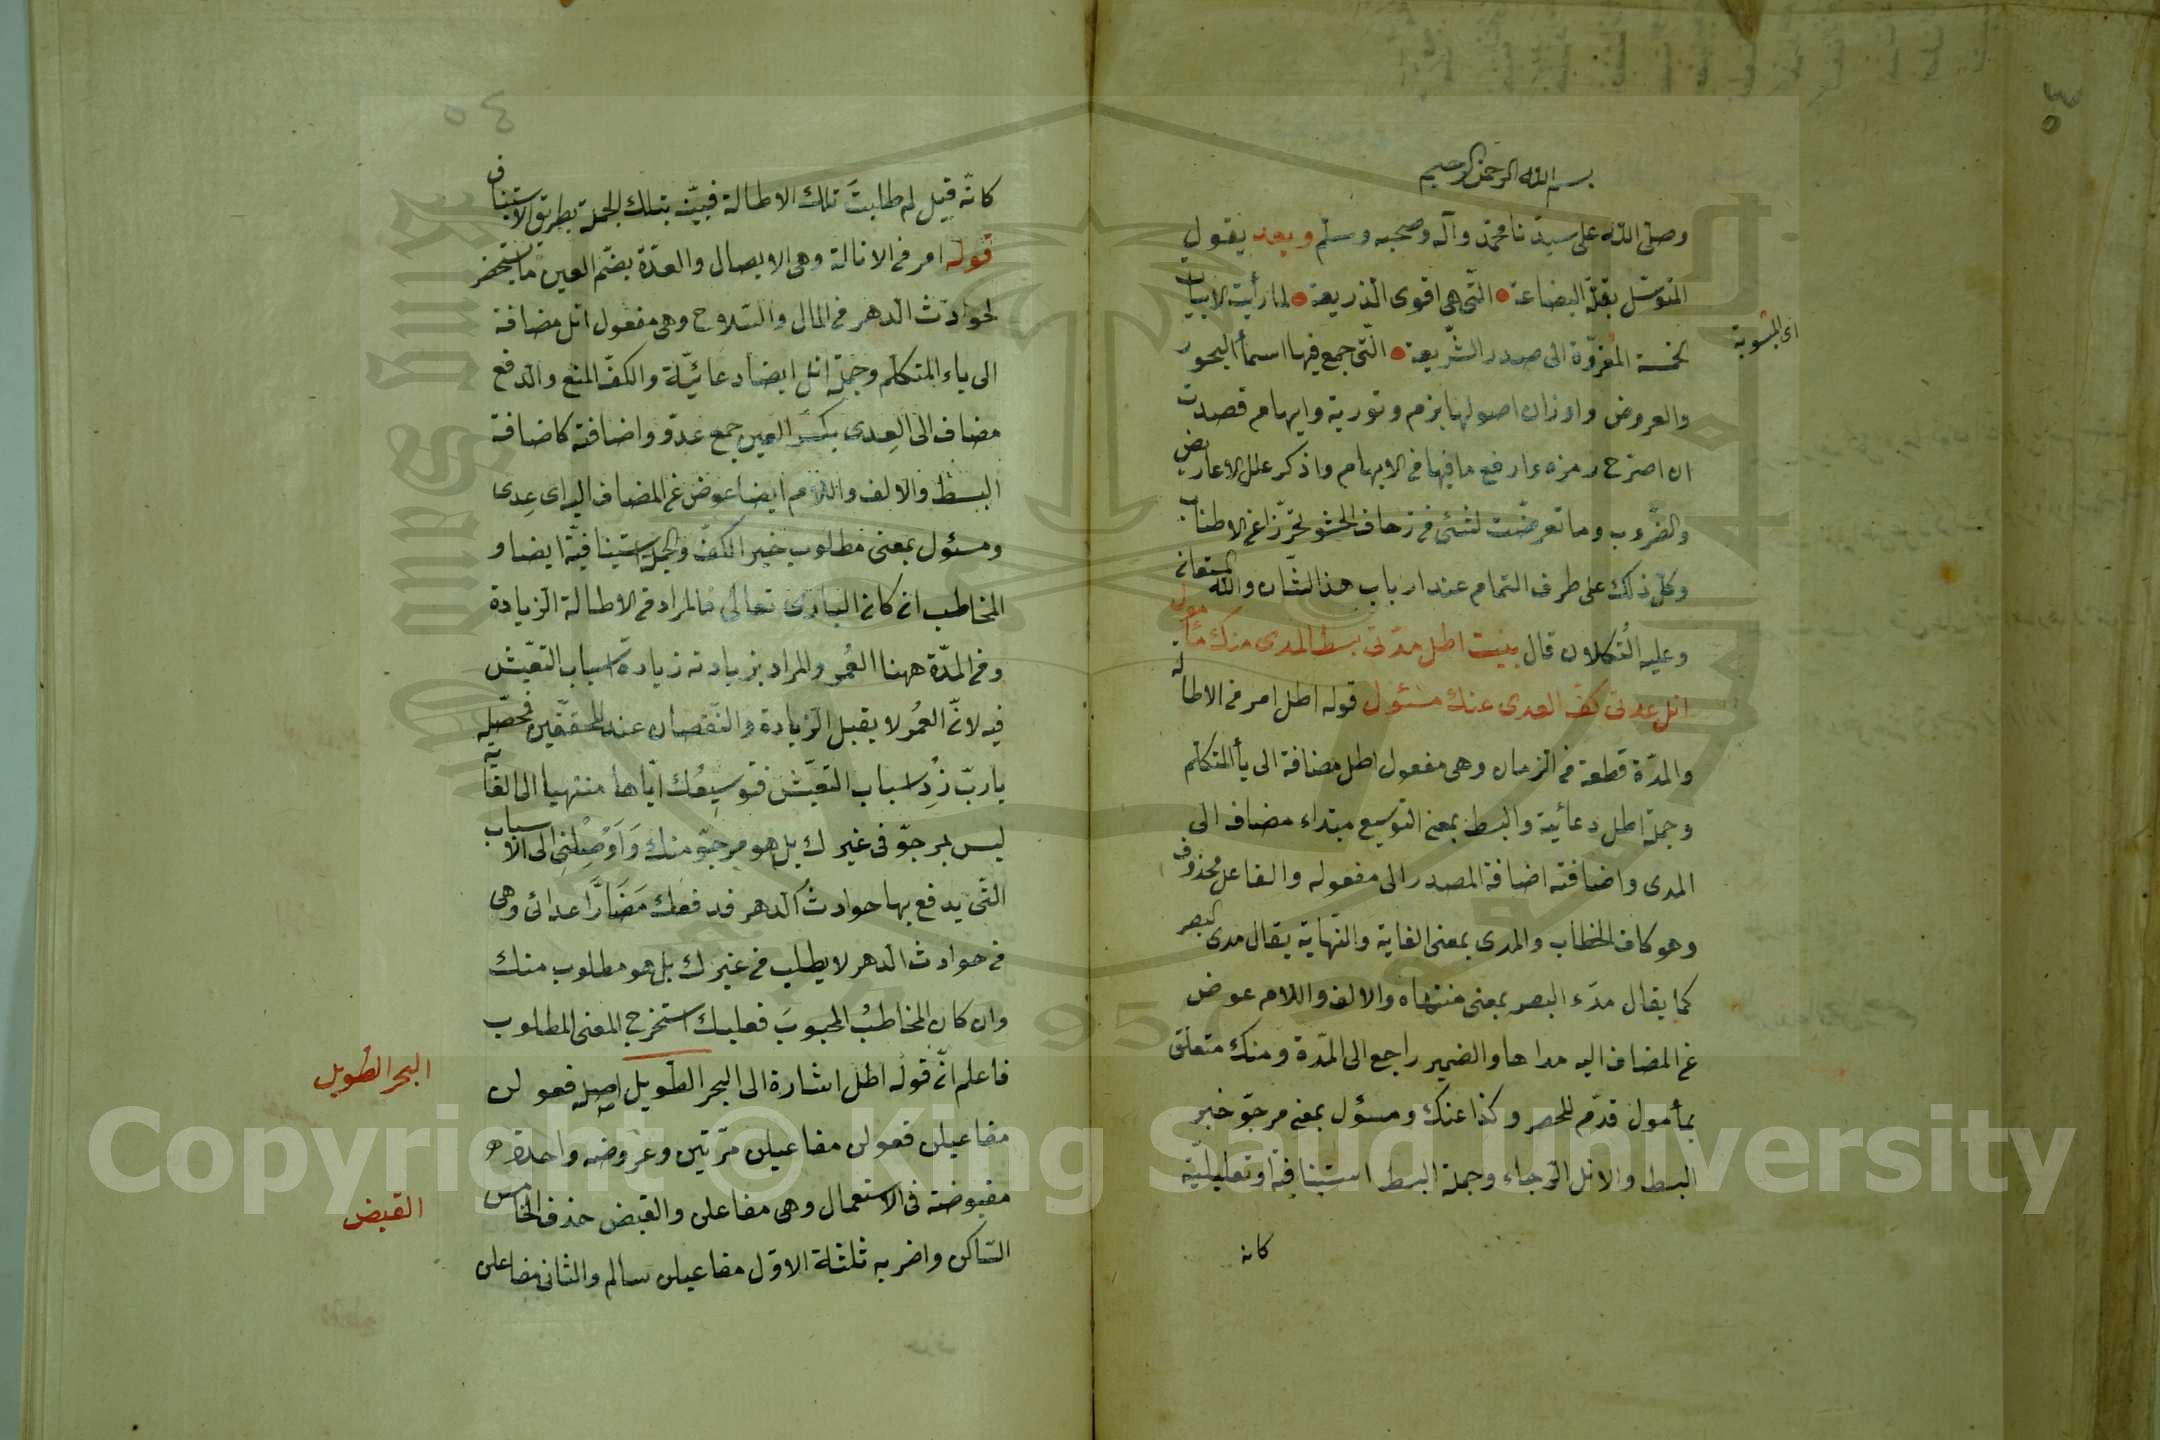 بسم الله الرحمن الرحيم
وصلى الله على سيدنا محمد وآله وصحبه وسلم وبعد يقول
المتوسّل بقلّة البضاعة • التّى هى اقوى الذريعة • لما رأيت الابيات
الخمسة المغزوّة الى صدر الشّريعة • الّتى جمع فيها اسمأ البحور
اى المنسوبة
والعروض واوزان اصولها برمز وتورية وايهام قصدت
ان اصرّح رمزه وارفع ما فيها فى الابهام واذكر علل الاعاريض
والضّروب وما تعرضّت لشئ فى زحاف الحشو تحرّزا عن الاطناب
وكلّ ذلك على طرف الثمام عند ارباب هذا الشّان والله المستعان
وعليه التكلان قال بيت اطل مدّتى بسط المدى منك مأمول
انل عدتى كفّ العدى عنك مسئول قوله اطل امر فى الاطالة
والمدّة قطعة فى الزمان وهى مفعول اطل مضافة الى يأ المتكلم
وجملة اطل دعائية والبسط بمعنى التوسيع مبتداء مضاف الى
المدى واضافته اضافة المصدر الى مفعوله والفاعل محذوف
وهو كاف الخطاب والمدى بمعنى الغاية والنهاية يقال مدى البصر
كما يقال مدّ البصر بمعنى منتهاه والالف واللام عوض
عن المضاف اليه مداها والضمير راجع الى المدّة ومنك متعلق
بمأمول قدّم للحصر وكذا عنك ومسؤل بمعنى مرجوّ خبر
البسط والامل الرجاء وجملة البسط استينافية او تعليليّة
كانه
كانّه قيل لم طلبت تلك الاطالة فبيّن بتلك الجملة بطريق الاستيناف
قوله امر فى الانالة وهى الايصال والعدّة بضمّ العين ما يستحضر
لحوادث الدهر فى المال والسّلاح وهى مفعول انل مضافة
الى ياء المتكلم وجملة انل ايضا دعائيّة والكفّ المنع والدفع
مضاف الى العِدى بكسر العين جمع عدوّ واضافته كاضافة
البسط والالف واللام ايضا عوض عن المضاف اليه اى عِدى
ومسئول بمعنى مطلوب خبر الكفّ والجملة استينافيّة ايضا و
المخاطب ان كان البارى تعالى فالمراد فى الاطالة الزيادة
وفى المدّة ههنا العُمر والمراد بزيادته زيادة اسباب التعيّش
فيه لانّ العُمر لا يقبل الزيادة والنّقصان عند المحققين فحصّله
ياربّ زِدْ اسباب التعيّش فتوسِيعُك ايّاها منتهيا الى الغاية
ليس بمرجوّ فى غيرك بل هو مرجوّ منك وَاَوْصِلْنِى الى الاسباب
التّى يدفع بها حوادثُ الدهر فدفعك مَضَارَّ اعدائى وهى
فى حوادث الدهر لا يطلب فى غيرك بل هو مطلوب منك
وان كان المخاطبُ المحبوبَ فعليك استخرج المعنى المطلوب
فاعلم انّ قوله اطل اشارة الى البحر الطّويل اصله فعولن
البحر الطويل
مفاعيلن فعولن مفاعيلن مرّتين وعروضه واحدة هو
مقبوضة فى الاستعمال وهى مفاعلن والقبض حذف الخامس
القبض
السّاكن واضربه ثلثة الاوّل مفاعيلن سالم والثانى مفاعلن
Copyright © King Saud University